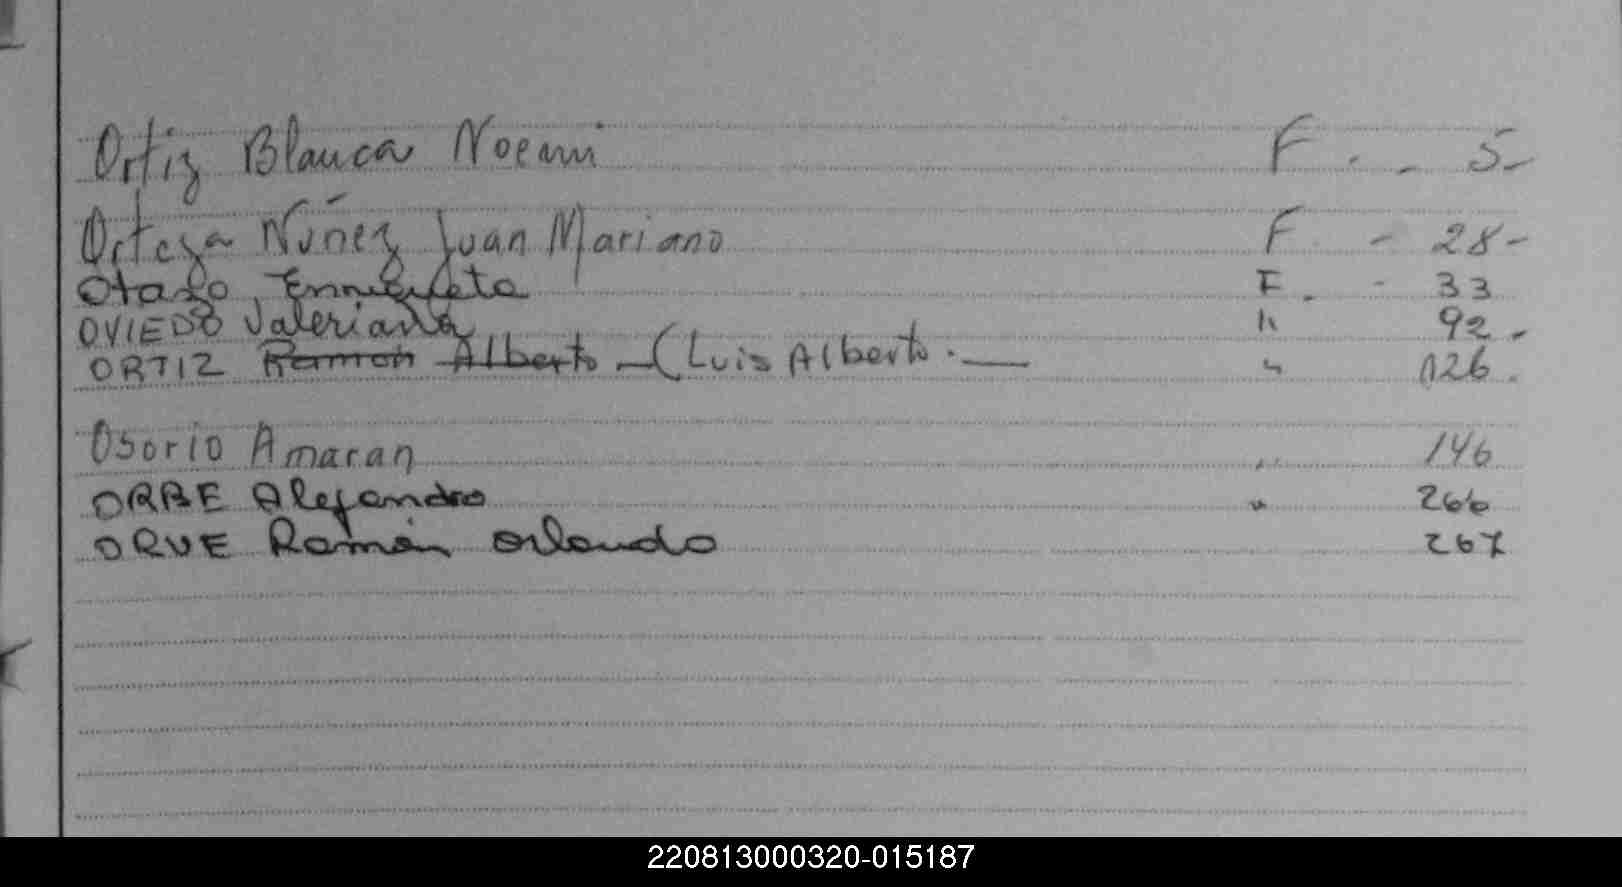 Ortiz Blanca Noemi F. - 5-
Ortega Núñez Juan Mariano F. - 28-
Otazo, Enriqueta F. - 33
OVIEDO Valeriana " 92.
ORTIZ Ramon Alberto - (Luis Alberto. — " 126.
Osorio Amaran " 146
ORBE Alejandro " 266
ORUE Ramón Orlando 267
220813000320-015187